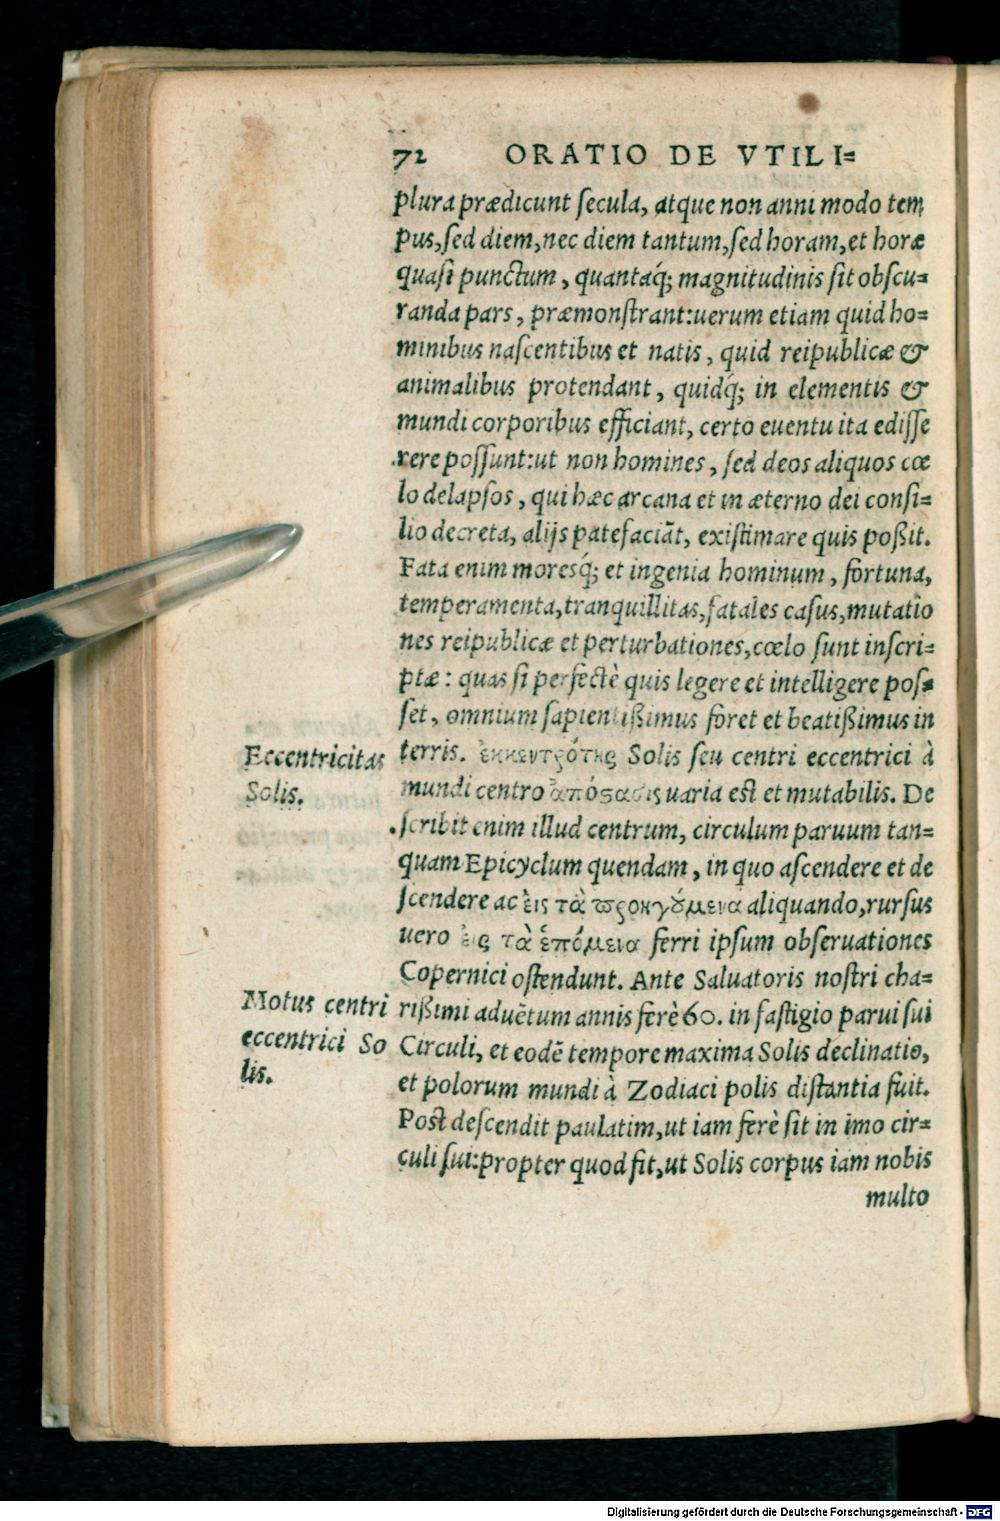 72 ORATIO DE VTILI=
plura prædicunt ſecula, atque non anni modo tem
pus, ſed diem, nec diem tantum, ſed horam, et horæ
quaſi punctum, quantaq́; magnitudinis ſit obſcu=
randa pars, præmonſtrant: uerum etiam quid ho=
minibus naſcentibus et natis, quid reipublicæ &
animalibus protendant, quidq́; in elementis &
mundi corporibus efficiant, certo euentu ita ediſſe
rere poſſunt: ut non homines, ſed deos aliquos cœ
lo delapſos, qui hæc arcana et in æterno dei conſi=
lio decreta, alijs patefaciāt, exiſtimare quis poßit.
Fata enim moresq́; et ingenia hominum, fortuna,
temperamenta, tranquillitas, fatales caſus, mutatio
nes reipublicæ et perturbationes, cœlo ſunt inſcri=
ptæ: quas ſi perfectè quis legere et intelligere poſ=
ſet, omnium ſapientißimus foret et beatißimus in
Eccentricitas
Solis.
terris. ἐκκεντρότης Solis ſeu centri eccentrici à
mundi centro ἀπόστασις uaria eſt et mutabilis. De
ſcribit enim illud centrum, circulum paruum tan=
quam Epicyclum quendam, in quo aſcendere et de
ſcendere ac ἐις τὰ προηγούμενα aliquando, rurſus
uero ἐις τὰ ἑπόμεια ferri ipſum obſeruationes
Copernici oſtendunt. Ante Saluatoris noſtri cha=
Motus centri
eccentrici So
lis.
rißimi aduētum annis ferè 60. in faſtigio parui ſui
Circuli, et eodē tempore maxima Solis declinatio,
et polorum mundi à Zodiaci polis diſtantia fuit.
Poſt deſcendit paulatim, ut iam ferè ſit in imo cir=
culi ſui: propter quod fit, ut Solis corpus iam nobis
multo
Digitalisierung gefördert durch die Deutsche Forschungsgemeinschaft - DFG